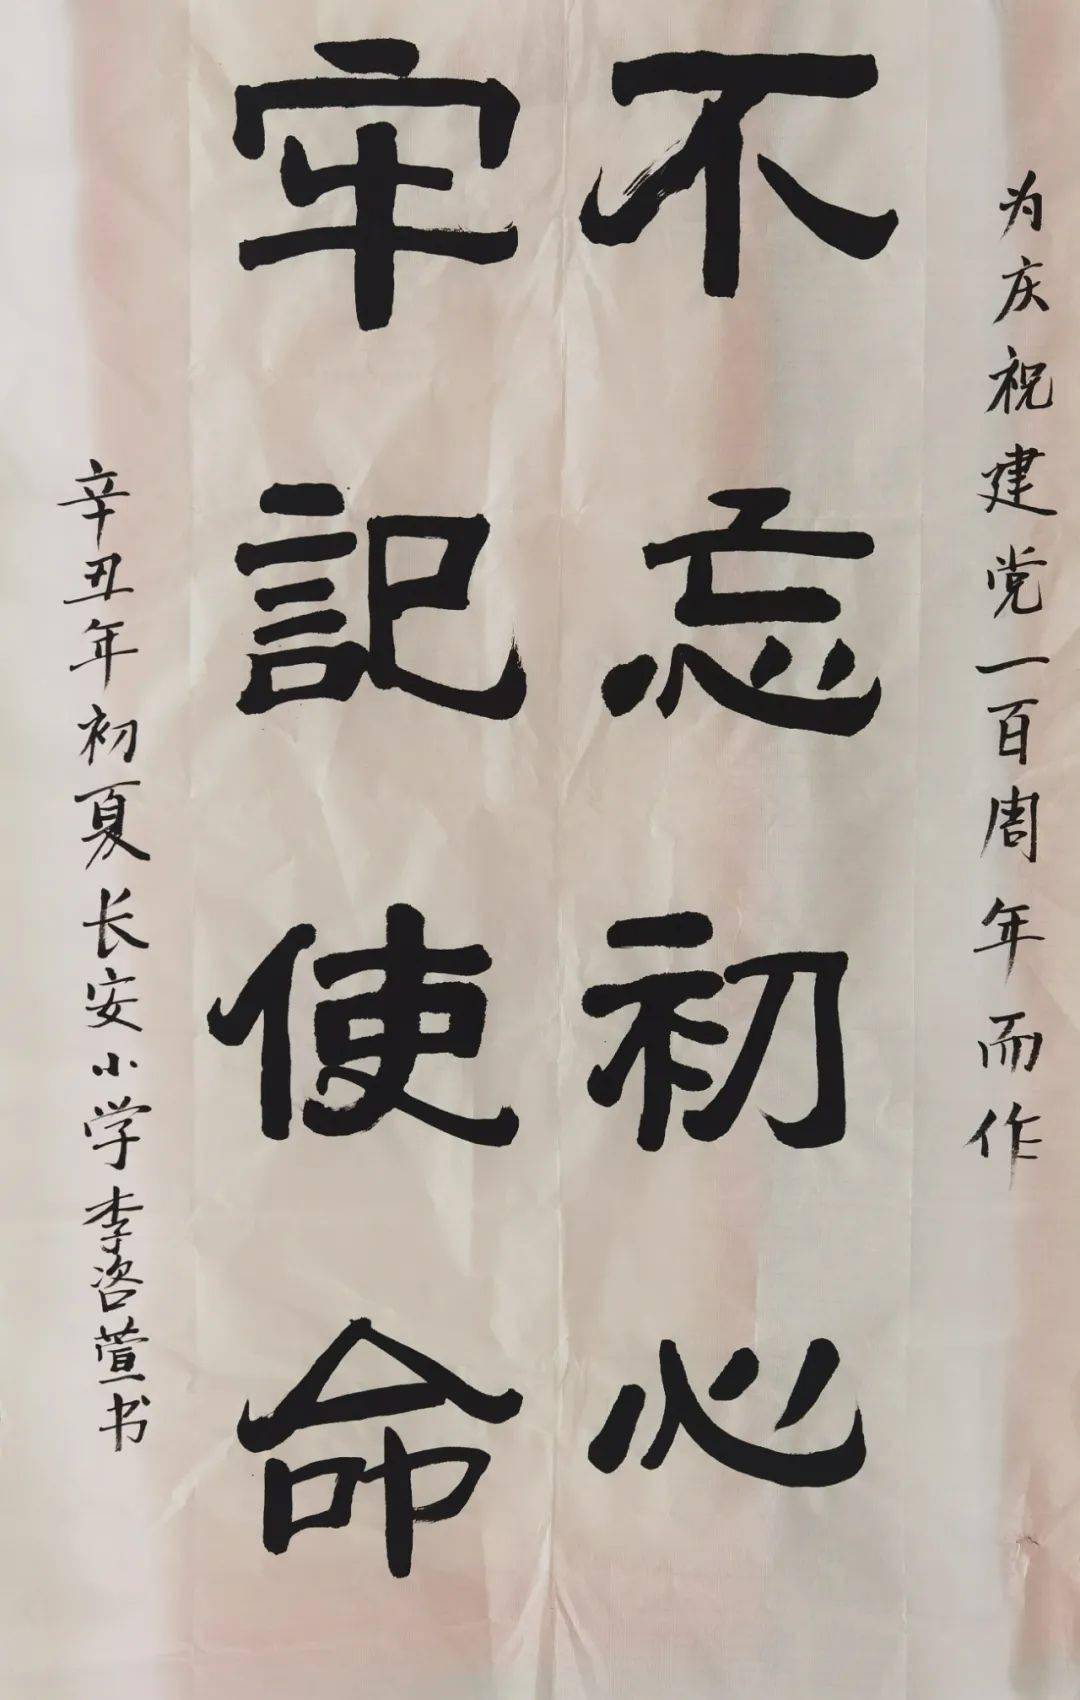 为庆祝建党一百周年而作
不忘初心
牢記使命
辛丑年初夏长安小学李咨萱书